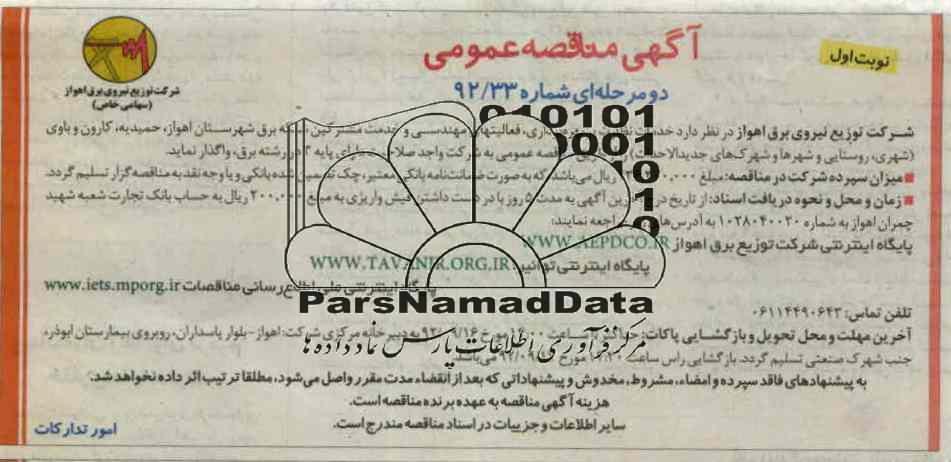 آگهی مناقصه عمومی
نوبت اول
دو مرحله‌ای شماره ۹۲/۳۳
شرکت توزیع نیروی برق اهواز
(سهامی خاص)
010101
0001
10
1
0
شرکت توزیع نیروی برق اهواز در نظر دارد خدمات مهندسی و خدمت مشترکین شبکه برق شهرستان اهواز، حمیدیه، کارون و باوی
(شهری، روستایی و شهرها و شهرک‌های جدیدالاحداث) مناقصه عمومی به شرکت واجد صلاحیت پایه ۲ در رشته برق، واگذار نماید.
■ میزان سپرده شرکت در مناقصه: مبلغ ریال می‌باشد که به صورت ضمانت‌نامه بانکی معتبر، چک تضمین شده بانکی و یا وجه نقد به مناقصه گزار تسلیم گردد.
■ زمان و محل و نحوه دریافت اسناد: از تاریخ آگهی به مدت ۵ روز با در دست داشتن فیش واریزی به مبلغ ۲۰۰,۰۰۰ ریال به حساب بانک تجارت شعبه شهید
چمران اهواز به شماره ۱۰۲۸۰۴۰۰۲۰ به آدرس‌های مراجعه نمایند:
پایگاه اینترنتی شرکت توزیع برق اهواز WWW.AEPDCO.IR
پایگاه اینترنتی توانیر: WWW.TAVANIR.ORG.IR
پایگاه اینترنتی ملی اطلاع رسانی مناقصات www.iets.mporg.ir
ParsNamadData
تلفن تماس: ۰۶۱۱۴۴۹۰۶۴۳
مرکز فرآوری اطلاعات پارس نماد داده ها
آخرین مهلت و محل تحویل و بازگشایی پاکات: ساعت به دبیرخانه مرکزی شرکت: اهواز- بلوار پاسداران، روبروی بیمارستان ابوذر،
جنب شهرک صنعتی تسلیم گردد. بازگشایی راس ساعت مورخ می‌باشد.
به پیشنهادهای فاقد سپرده و امضاء، مشروط، مخدوش و پیشنهاداتی که بعد از انقضاء مدت مقرر واصل می‌شود، مطلقا ترتیب اثر داده نخواهد شد.
هزینه آگهی مناقصه به عهده برنده مناقصه است.
سایر اطلاعات و جزییات در اسناد مناقصه مندرج است.
امور تدارکات